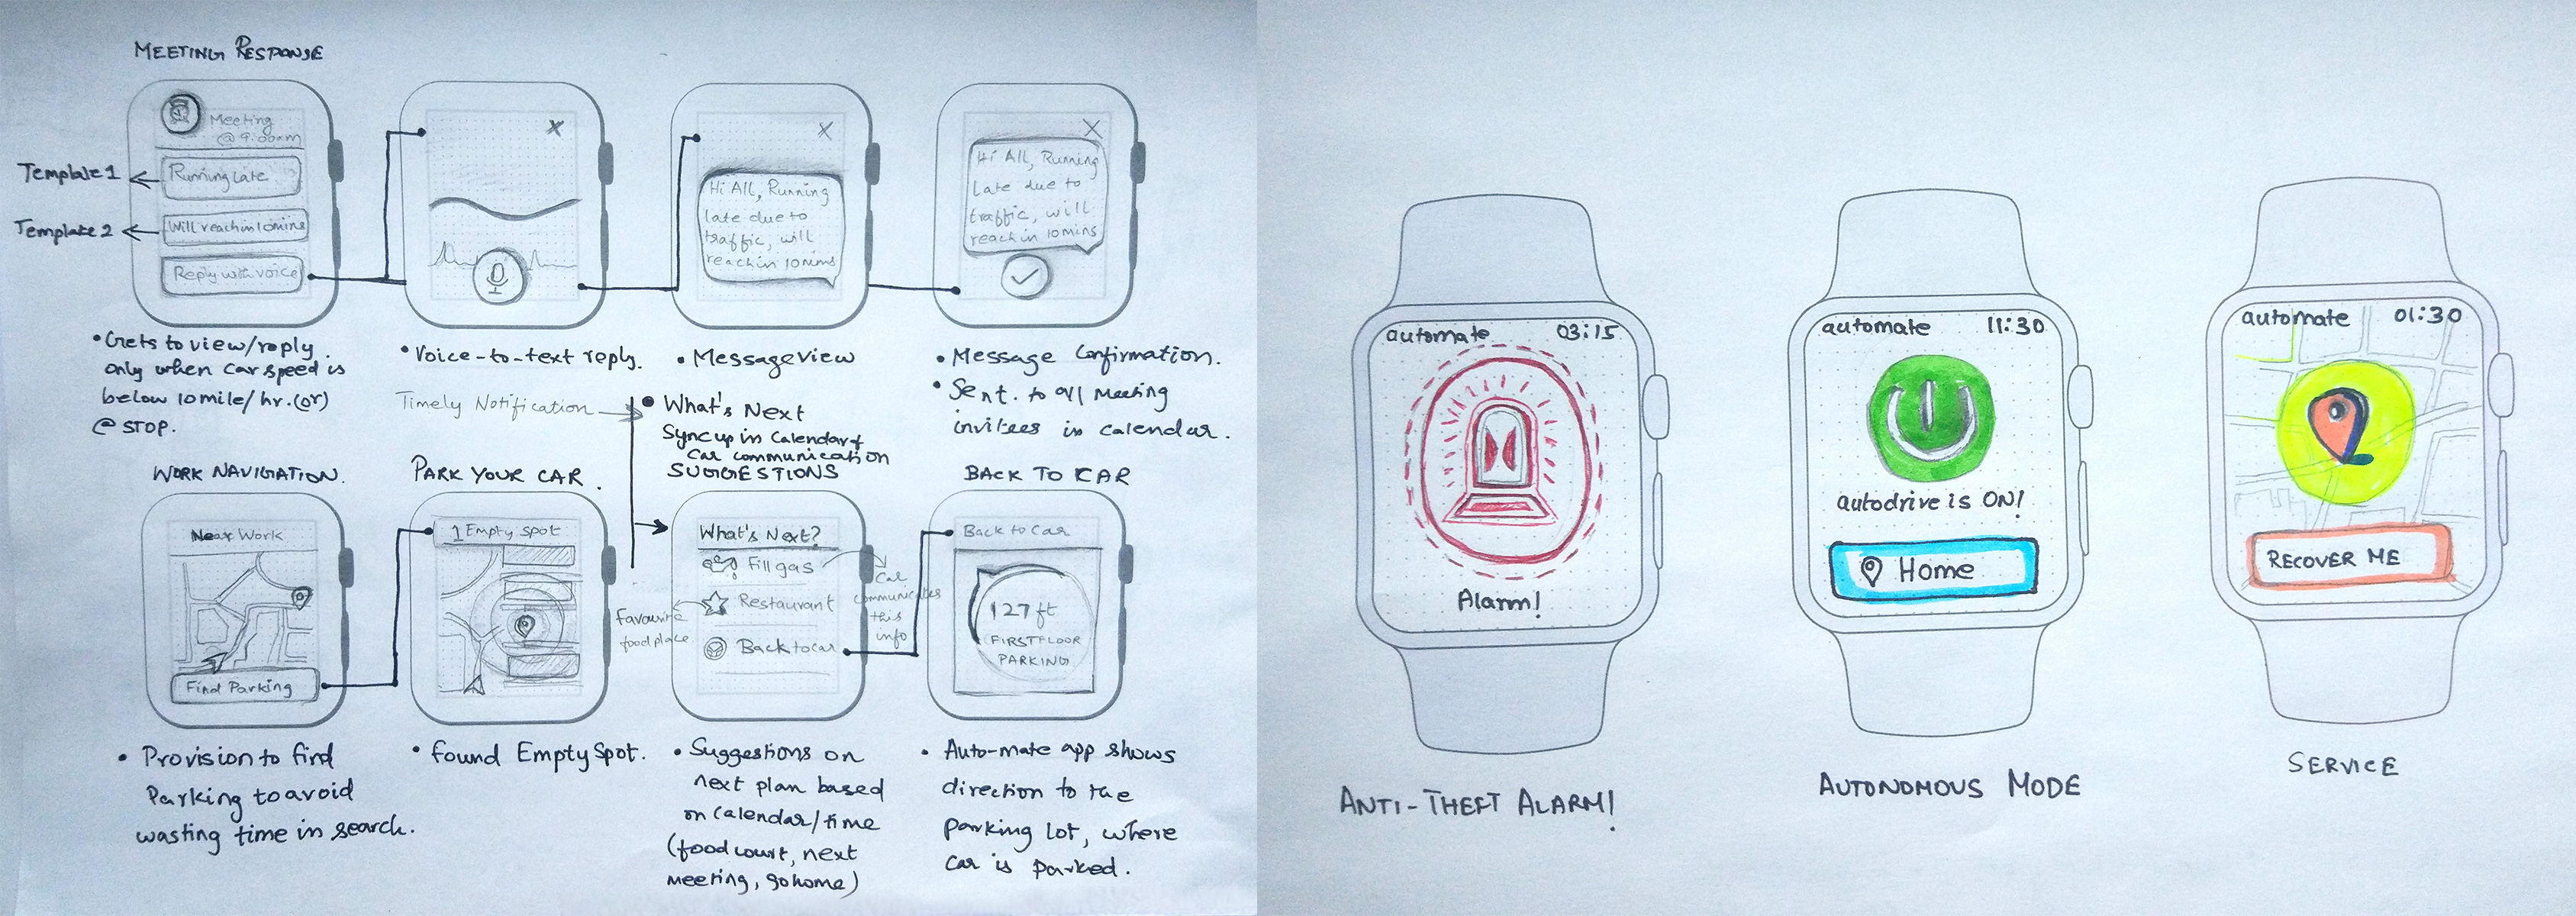 MEETING RESPONSE
Meeting
@ 9:00am
Template 1
Running late
Template 2
Will reach in 10mins
Reply with voice
• Gets to view/reply
only when car speed is
below 10mile/hr. (or)
@ STOP.
X
• Voice-to-text reply.
X
Hi All, Running
late due to
traffic, will
reach in 10 mins
• Message view
X
Hi All, Running
Late due to
traffic, will
reach in 10 mins
• Message Confirmation.
• Sent. to all Meeting
invitees in calendar.
Timely Notification
• What's Next
Sync up in Calendar &
Car communication
WORK NAVIGATION.
Near Work
Find Parking
• Provision to find
Parking to avoid
wasting time in search.
PARK YOUR CAR.
1 Empty spot
• found Empty Spot.
SUGGESTIONS
What's Next?
Fill gas
Restaurant
Back to car
Favourite
food place
Car
communicates
this
info
• Suggestions on
next plan based
on Calendar/time
(food court, next
meeting, go home)
BACK TO CAR
Back to Car
127 ft
FIRST FLOOR
PARKING
• Auto-mate app shows
direction to the
parking lot, where
car is parked.
automate 03:15
Alarm!
ANTI-THEFT ALARM!
automate 11:30
autodrive is ON!
Home
AUTONOMOUS MODE
automate 01:30
RECOVER ME
SERVICE